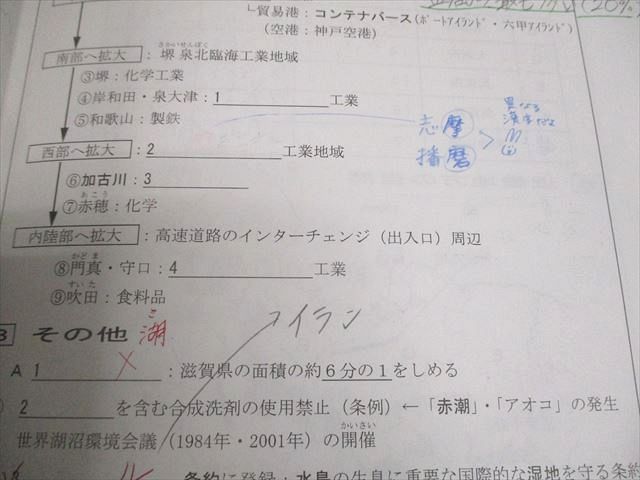 貿易港：コンテナバース(ポートアイランド・六甲アイランド)
(20%
(空港：神戸空港)
南部へ拡大：堺泉北臨海工業地域
さかいせんぼく
③堺：化学工業
④岸和田・泉大津：1 工業
⑤和歌山：製鉄
志摩
播磨
異なる
漢字だよ
西部へ拡大：2 工業地域
⑥加古川：3
⑦赤穂：化学
あこう
内陸部へ拡大：高速道路のインターチェンジ（出入口）周辺
⑧門真・守口：4 工業
かどま
⑨吹田：食料品
すいた
コイラン
3 その他
湖
A 1 ：滋賀県の面積の約6分の1をしめる
2 を含む合成洗剤の使用禁止（条例）←「赤潮」・「アオコ」の発生
世界湖沼環境会議（1984年・2001年）の開催
かいさい
条約に登録：水鳥の生息に重要な国際的な湿地を守る条約